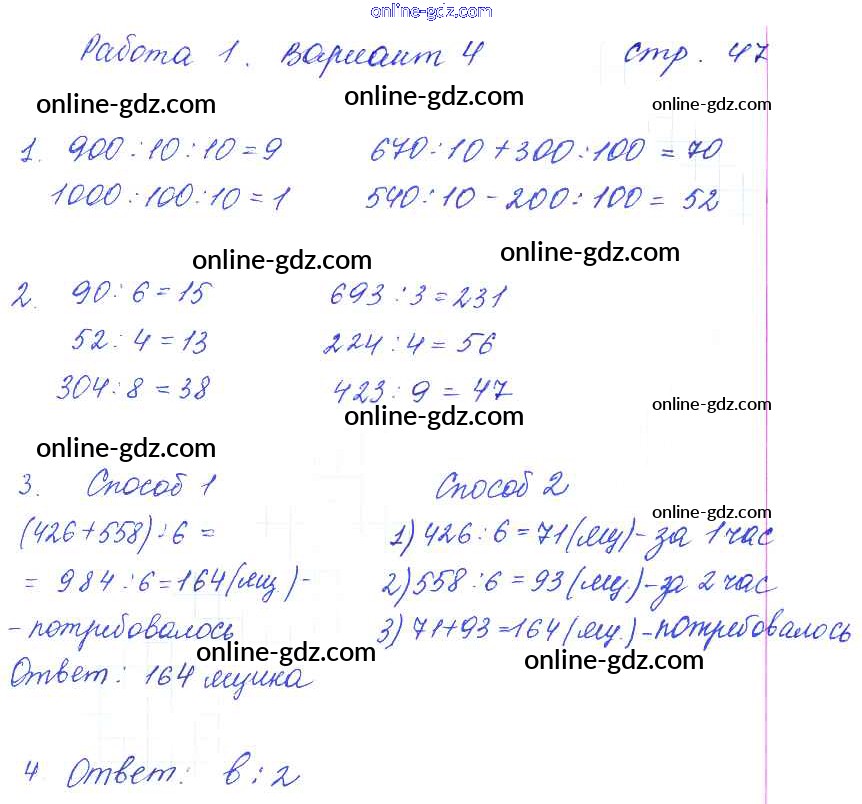 online-gdz.com
Работа 1. Вариант 4 стр. 47
online-gdz.com online-gdz.com online-gdz.com
1. 900:10:10=9 670:10+300:100=70
1000:100:10=1 540:10-200:100=52
online-gdz.com online-gdz.com
2. 90:6=15 693:3=231
52:4=13 224:4=56
304:8=38 423:9=47
online-gdz.com online-gdz.com
online-gdz.com
3. Способ 1 Способ 2
online-gdz.com
(426+558):6= 1) 426:6=71(ящ)-за 1 час
=984:6=164(ящ.)- 2) 558:6=93(ящ.)-за 2 час
-потребовалось 3) 71+93=164(ящ.)-потребовалось
online-gdz.com online-gdz.com
Ответ: 164 ящика
4 Ответ: в:2